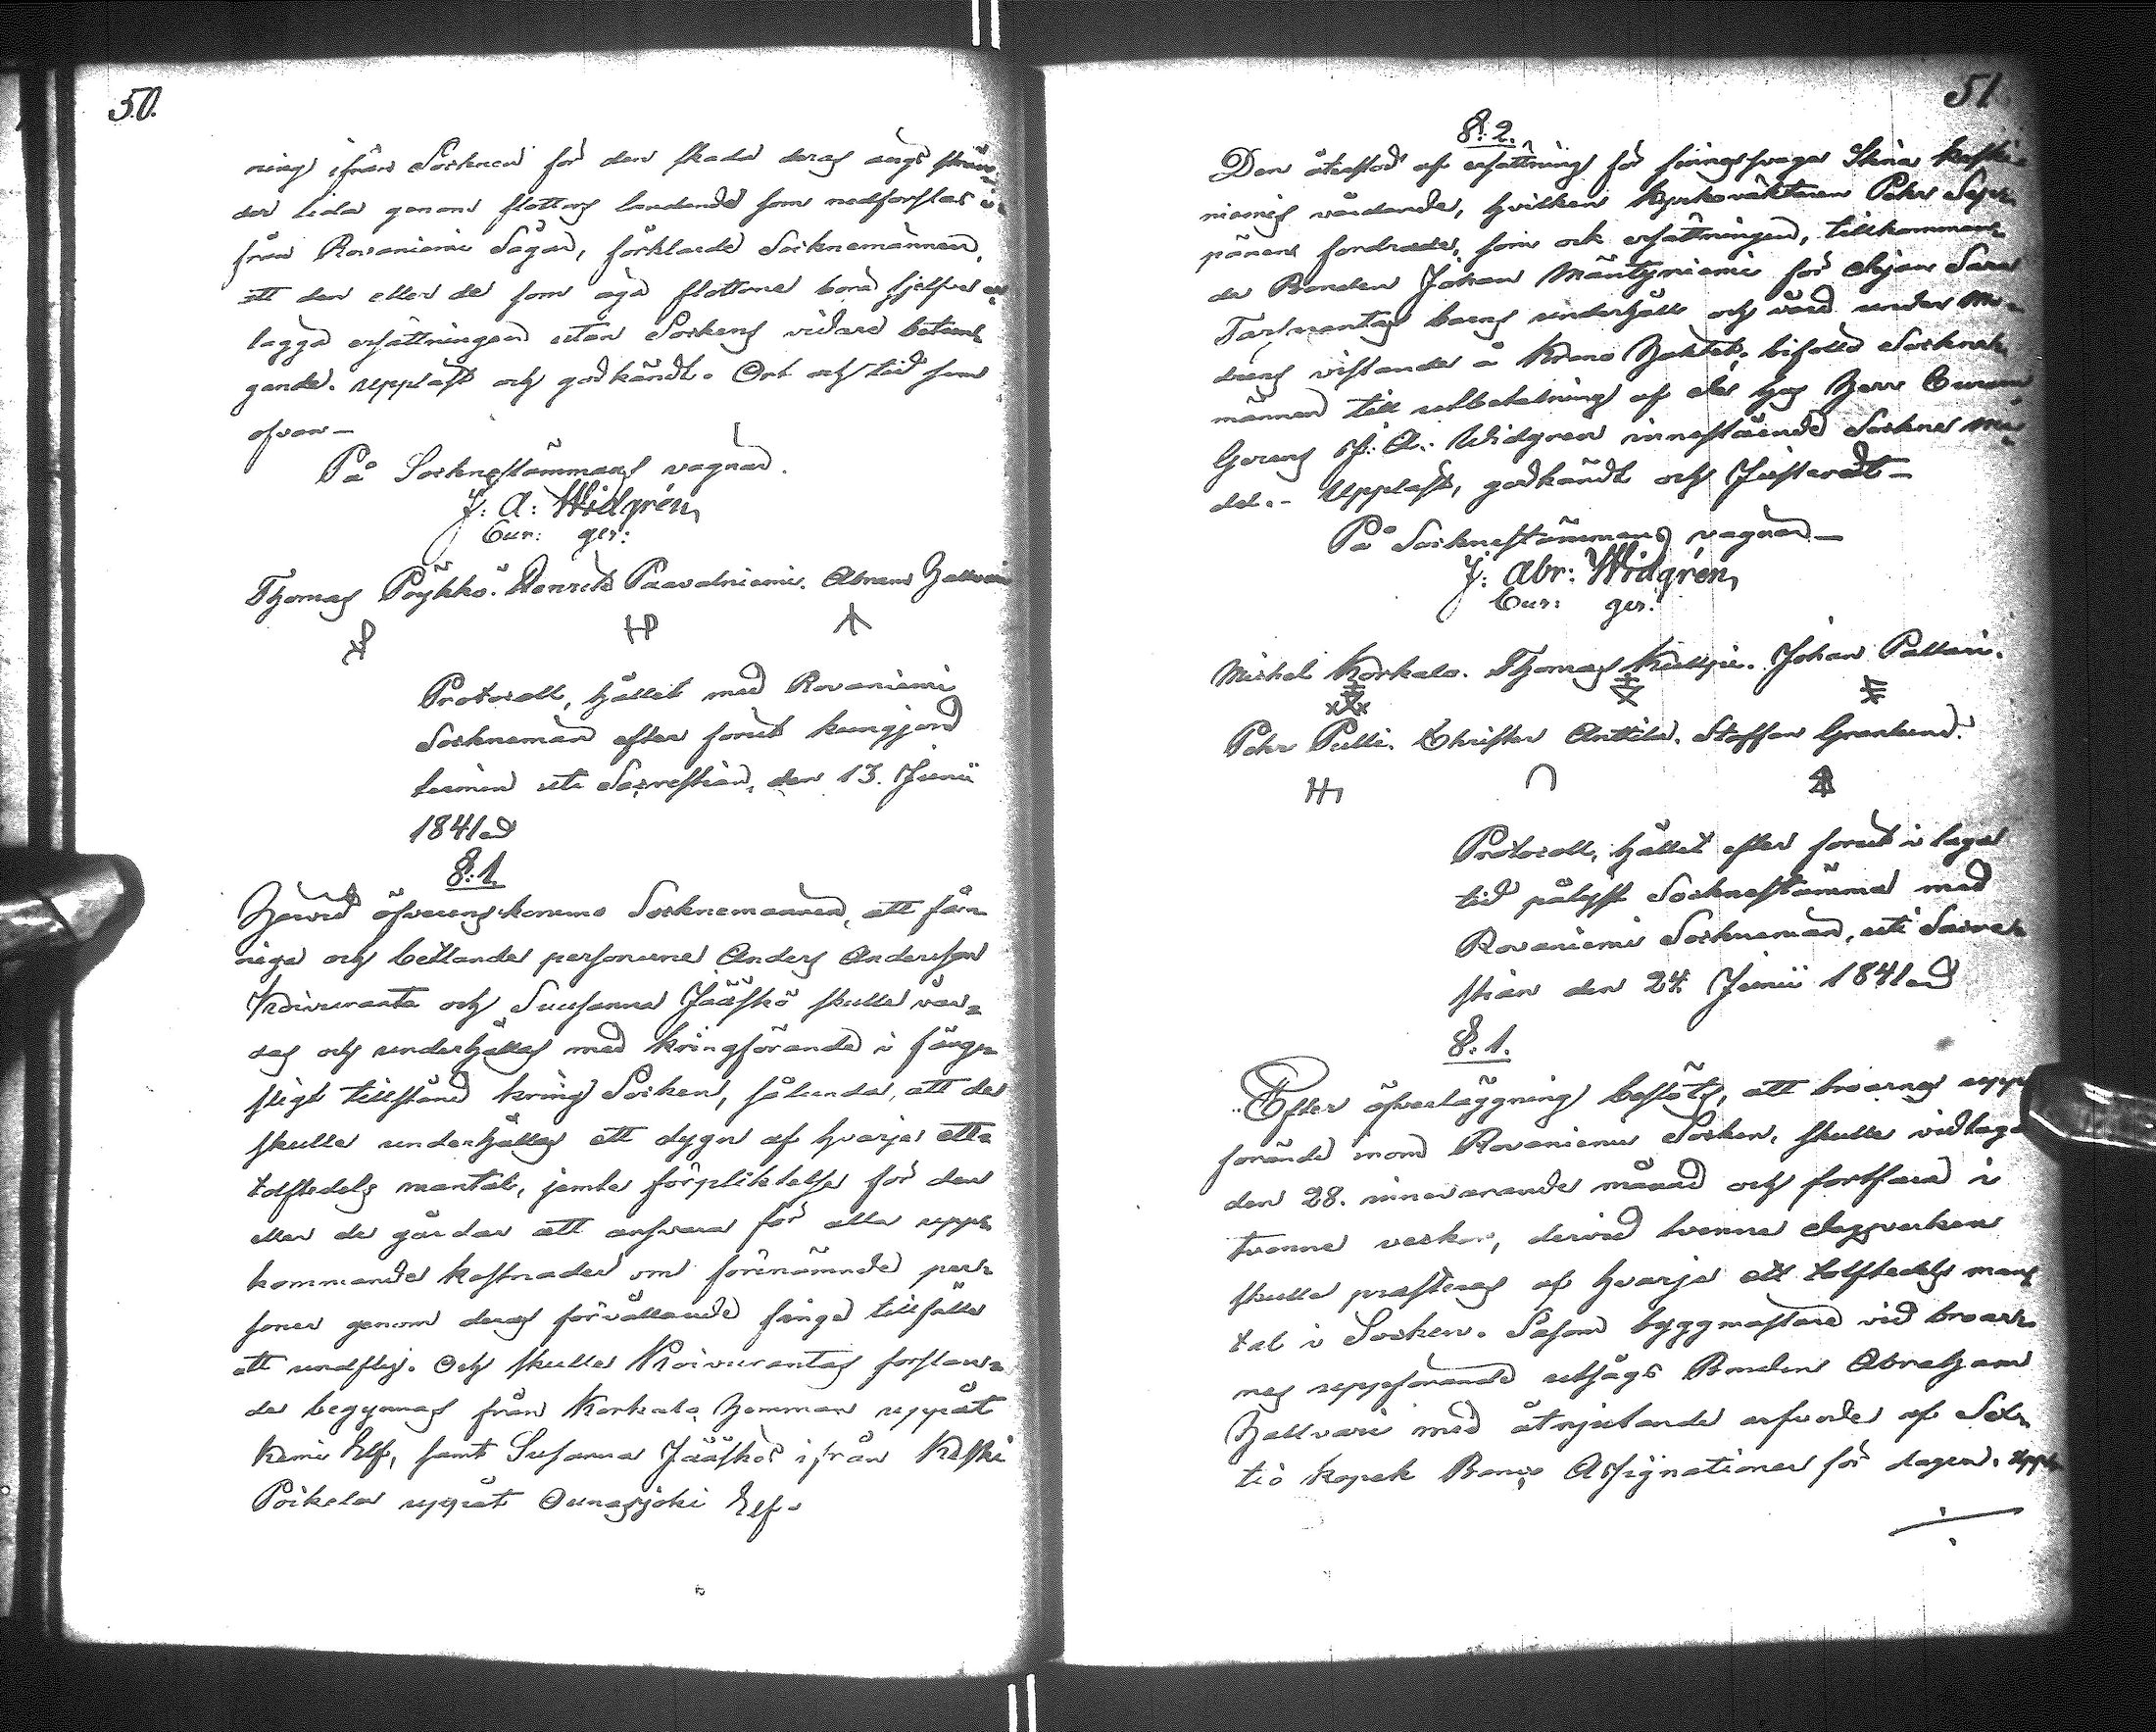 50.
ning ifrån Socknen för den skada deras ängssträn-
der lida genom flottars landande som nedforslas i-
från Rovaniemi Sågar, förklarde Socknemännen,
att den eller de som äga flottorne borde sjelfve er-
lägga ersättningen utan Sockens vidare betun-
gande. Uppläst och godkändt. Ort och tid som
ofvan —
På Socknestämmans vägnar.
J: A: Widgrén,
Cur: ger:
Thomas Pöykkö. Henrik Paavalniemi. Abram Hallvari
Protocoll, hållit med Rovaniemi
Socknemän efter förut kungjord
termin uti Sacrestian, den 13. Junii
1841.
§:1.
Härvid öfverenskommo Socknemännen, att fån-
niga och betlande personerne Anders Andersson
Koivuranta och Susanna Jääskö skulle vår-
das och underhållas med kringförande i fäng-
sligt tillstånd kring Socken, sålunda, att de
skulle underhållas ett dygn af hvarje ett-
tolftedels mantal, jemte förpliktelse för den
eller de gårdar att ansvara för alla upp-
kommande kostnader om förenämnde per-
soner genom deras förvållande finge tillfälle
att undfly. Och skulle Koivurantas forslan-
de begynnas från Korkalo hemman uppåt
Kemi Elf, samt Susanna Jääskös ifrån Keski
Poikela uppåt Ounasjoki Elf.
51
§:2.
Den återstod af ersättning för sinnessvaga Stina Keski-
niemis vårdande, hvilken Kyrkoväktaren Pehr Sep-
pänen fordrade, som ock ersättningen, tillkomman-
de Bonden Johan Mäntyniemi för Pigan Sara
Tartuantas barns underhåll och vård under Mo-
drens vistande å Krono Häktet, bifollo Sockne-
männen till utbetalning af de hos Herr Curam
Gerens J: A: Widgren innestående Sockne me-
del. - Uppläst, godkändt och Justeradt —
På Socknestämmans vägnar —
J: Abr: Widgrén,
Cur: ger:
Michel Korkalo. Thomas Kulpi. Johan Pallari.
Pehr Pulli. Christer Anttila. Staffan Granlund.
Protocoll, hållit efter förut i laga
tid pålyst Socknestämma med
Rovaniemi Socknemän, uti Sacre-
stian den 24. Junii 1841
§:1.
Efter öfverläggning beslöts, att broarnes upp-
förande inom Rovaniemi Socken, skulle vidtaga
den 28. innevarande månad och fortfara i
tvenne veckor, dervid tvenne dagsverken
skulle presteras af hvarje ett tolftedels man-
tal i Socken. Såsom byggmästare vid broar-
nes uppförande utsågs Bonden Abraham
Hallvari med åtnjutande arfvode af Sex-
tio kopek Banco Assignationer för dagen. Upp-